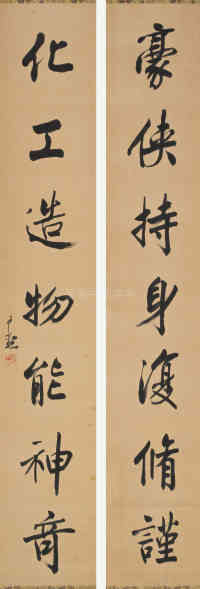 豪侠持身復脩謹
化工造物能神奇